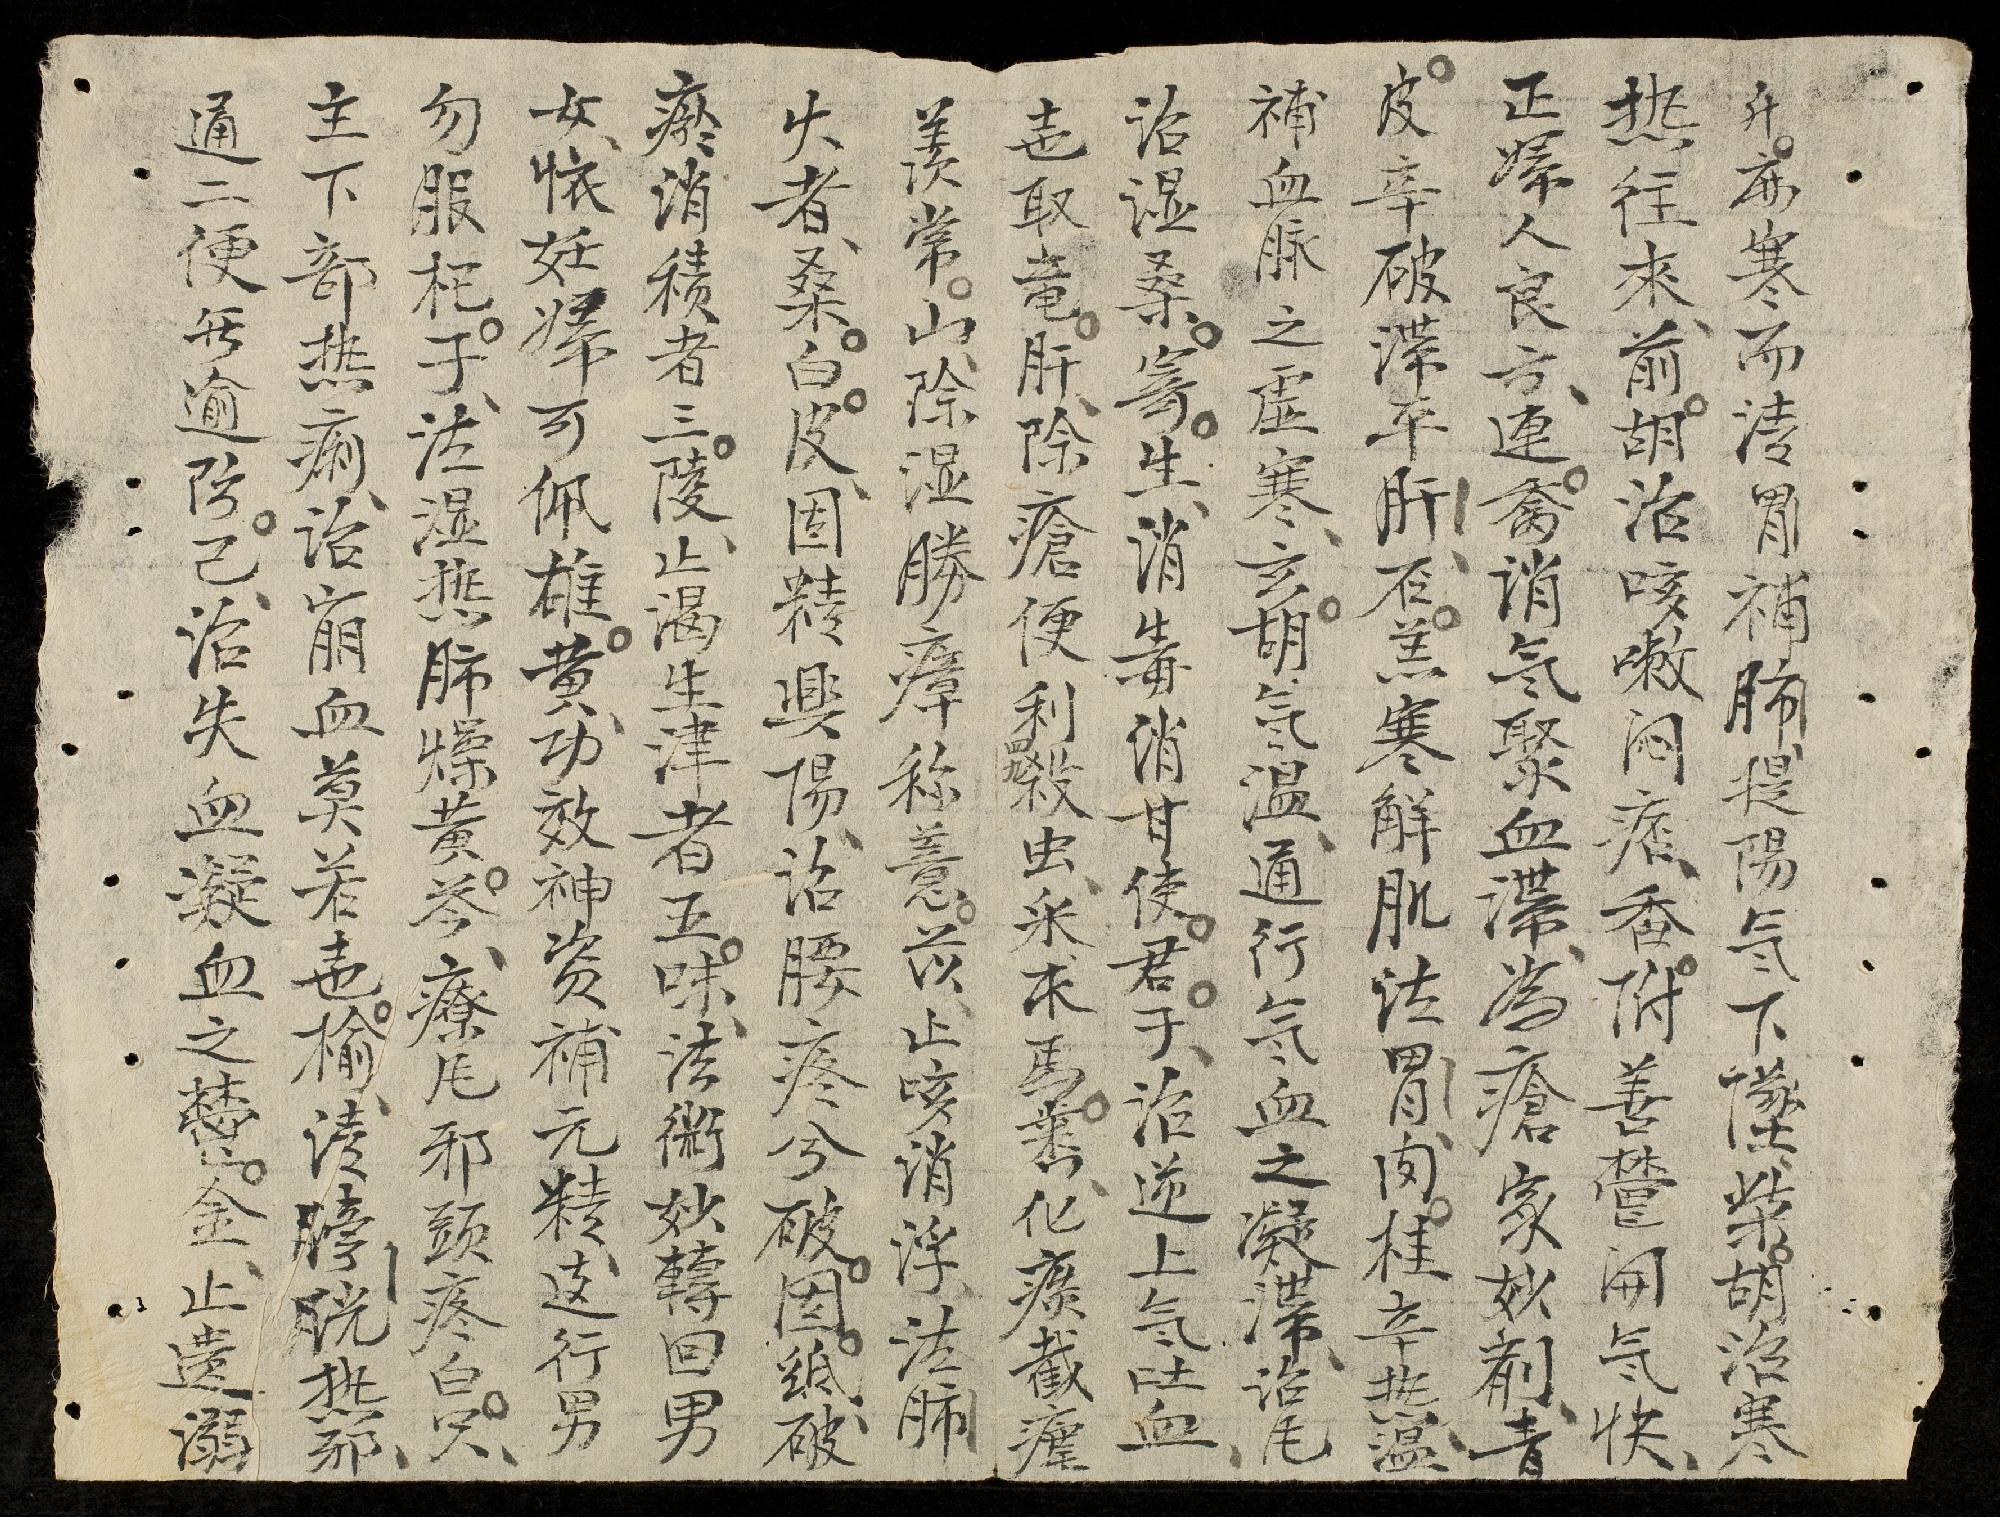 升麻寒而清胃補肺提陽气下墜柴胡治寒
热往來前胡治咳嗽闷痰香附善䯨開气快
正婦人良方連翹消气聚血滞為瘡家妙剤青
皮辛破滞平肝石羔寒解肌法胃肉桂辛热温
補血脉之虛寒玄胡气温通行气血之凝滞治凢
治湿桑寄生消毒消甘使君子治逆上气吐血
志取竜肝除瘡便利殺虫采求馬兠化痰截瘧
羡常山除湿勝瘴称薏苡止咳消浮法肺
火者桑白皮固精興陽治腰疼兮破固紙破
瘀消積者三陵止渴生津者五味法衛妙轉回男
女恢妊婦可佩雄黄功效神資補元精这行男
勿服杞子法湿热肺燥黄芩療凢邪頭疼白只
主下部热痢治崩血莫若地榆清膀胱热邪
通二便无逾防己治失血凝血之欝金止遺溺